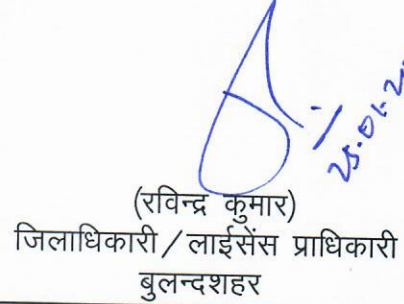 25.01.2
(रविन्द्र कुमार)
जिलाधिकारी/लाईसेंस प्राधिकारी
बुलन्दशहर